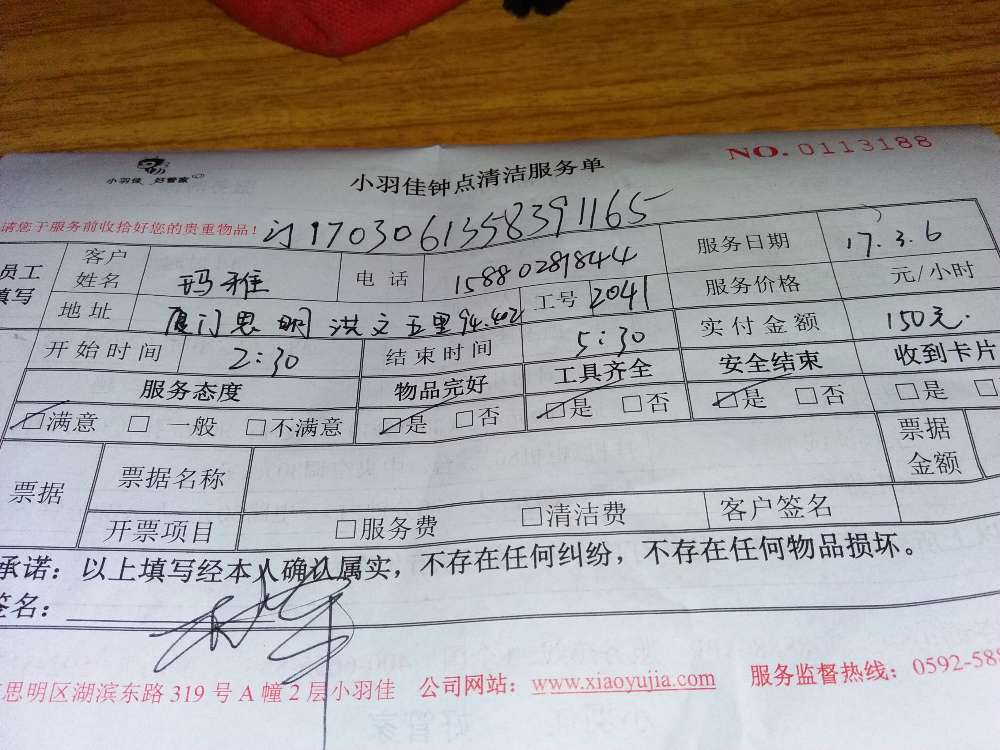 小羽佳 好管家
小羽佳钟点清洁服务单
NO. 0113188
请您于服务前收拾好您的贵重物品！
订1703061358391165
员工填写 客户姓名 玛雅 电话 15880281844 服务日期 17.3.6
地址 厦门思明洪文五里94.402 工号 2041 服务价格 元/小时
开始时间 2:30 结束时间 5:30 实付金额 150元.
服务态度 物品完好 工具齐全 安全结束 收到卡片
☑满意 □一般 □不满意 ☑是 □否 ☑是 □否 ☑是 □否 □是 □
票据 票据名称 票据金额
开票项目 □服务费 □清洁费 客户签名
承诺：以上填写经本人确认属实，不存在任何纠纷，不存在任何物品损坏。
签名：
思明区湖滨东路319号A幢2层小羽佳 公司网站：www.xiaoyujia.com 服务监督热线：0592-588